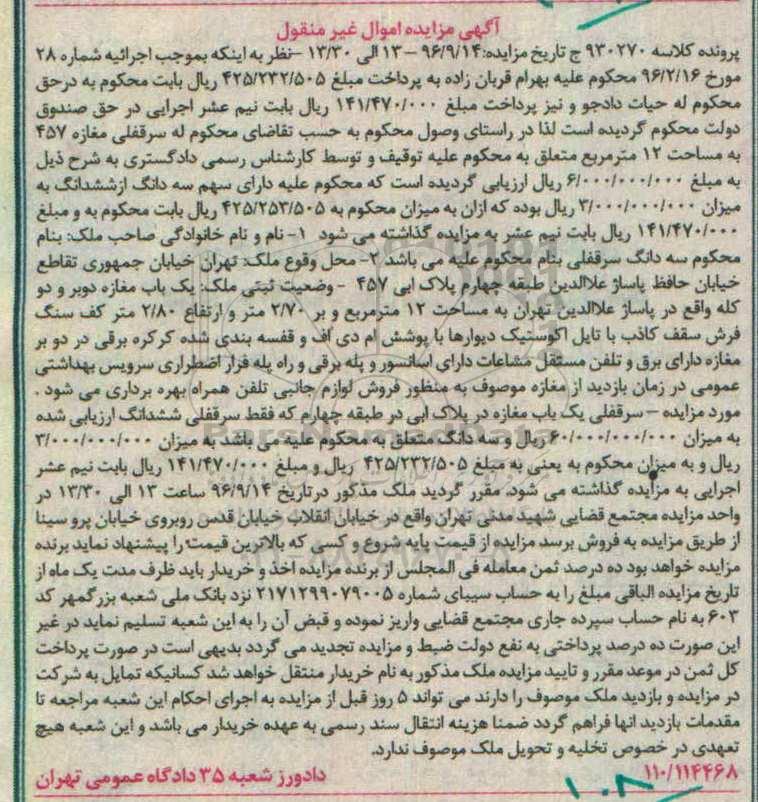 آگهی مزایده اموال غیر منقول
پرونده کلاسه ۹۳۰۲۷۰ ج تاریخ مزایده:۹۶/۹/۱۴ – ۱۳ الی ۱۳/۳۰ –نظر به اینکه بموجب اجرائیه شماره ۲۸
مورخ ۹۶/۲/۱۶ محکوم علیه بهرام قربان زاده به پرداخت مبلغ ۴۲۵/۲۳۲/۵۰۵ ریال بابت محکوم به درحق
محکوم له حیات دادجو و نیز پرداخت مبلغ ۱۴۱/۴۷۰/۰۰۰ ریال بابت نیم عشر اجرایی در حق صندوق
دولت محکوم گردیده است لذا در راستای وصول محکوم به حسب تقاضای محکوم له سرقفلی مغازه ۴۵۷
به مساحت ۱۲ مترمربع متعلق به محکوم علیه توقیف و توسط کارشناس رسمی دادگستری به شرح ذیل
به مبلغ ۶/۰۰۰/۰۰۰/۰۰۰ ریال ارزیابی گردیده است که محکوم علیه دارای سهم سه دانگ ازششدانگ به
میزان ۳/۰۰۰/۰۰۰/۰۰۰ ریال بوده که ازان به میزان محکوم به ۴۲۵/۲۵۳/۵۰۵ ریال بابت محکوم به و مبلغ
۱۴۱/۴۷۰/۰۰۰ ریال بابت نیم عشر به مزایده گذاشته می شود ۱- نام و نام خانوادگی صاحب ملک: بنام
محکوم سه دانگ سرقفلی بنام محکوم علیه می باشد ۲- محل وقوع ملک: تهران خیابان جمهوری تقاطع
خیابان حافظ پاساژ علاالدین طبقه چهارم پلاک ابی ۴۵۷ - وضعیت ثبتی ملک: یک باب مغازه دوبر و دو
کله واقع در پاساژ علاالدین تهران به مساحت ۱۲ مترمربع و بر ۲/۷۰ متر و ارتفاع ۲/۸۰ متر کف سنگ
فرش سقف کاذب با تایل اکوستیک دیوارها با پوشش ام دی اف و قفسه بندی شده کرکره برقی در دو بر
مغازه دارای برق و تلفن مستقل مشاعات دارای اسانسور و پله برقی و راه پله فرار اضطراری سرویس بهداشتی
عمومی در زمان بازدید از مغازه موصوف به منظور فروش لوازم جانبی تلفن همراه بهره برداری می شود .
مورد مزایده – سرقفلی یک باب مغازه در پلاک ابی در طبقه چهارم که فقط سرقفلی ششدانگ ارزیابی شده
به میزان ۶۰/۰۰۰/۰۰۰/۰۰۰ ریال و سه دانگ متعلق به محکوم علیه می باشد به میزان ۳/۰۰۰/۰۰۰/۰۰۰
ریال و به میزان محکوم به یعنی به مبلغ ۴۲۵/۲۳۲/۵۰۵ ریال و مبلغ ۱۴۱/۴۷۰/۰۰۰ ریال بابت نیم عشر
اجرایی به مزایده گذاشته می شود. مقرر گردید ملک مذکور درتاریخ ۹۶/۹/۱۴ ساعت ۱۳ الی ۱۳/۳۰ در
واحد مزایده مجتمع قضایی شهید مدنی تهران واقع در خیابان انقلاب خیابان قدس روبروی خیابان پرو سینا
از طریق مزایده به فروش برسد مزایده از قیمت پایه شروع و کسی که بالاترین قیمت را پیشنهاد نماید برنده
مزایده خواهد بود ده درصد ثمن معامله فی المجلس از برنده مزایده اخذ و خریدار باید ظرف مدت یک ماه از
تاریخ مزایده الباقی مبلغ را به حساب سیبای شماره ۲۱۷۱۲۹۹۰۷۹۰۰۵ نزد بانک ملی شعبه بزرگمهر کد
۶۰۳ به نام حساب سپرده جاری مجتمع قضایی واریز نموده و قبض آن را به این شعبه تسلیم نماید در غیر
این صورت ده درصد پرداختی به نفع دولت ضبط و مزایده تجدید می گردد بدیهی است در صورت پرداخت
کل ثمن در موعد مقرر و تایید مزایده ملک مذکور به نام خریدار منتقل خواهد شد کسانیکه تمایل به شرکت
در مزایده و بازدید ملک موصوف را دارند می تواند ۵ روز قبل از مزایده به اجرای احکام این شعبه مراجعه تا
مقدمات بازدید انها فراهم گردد ضمنا هزینه انتقال سند رسمی به عهده خریدار می باشد و این شعبه هیچ
تعهدی در خصوص تخلیه و تحویل ملک موصوف ندارد.
۱۱۰/۱۱۴۴۶۸ دادورز شعبه ۳۵ دادگاه عمومی تهران
۱۰۸